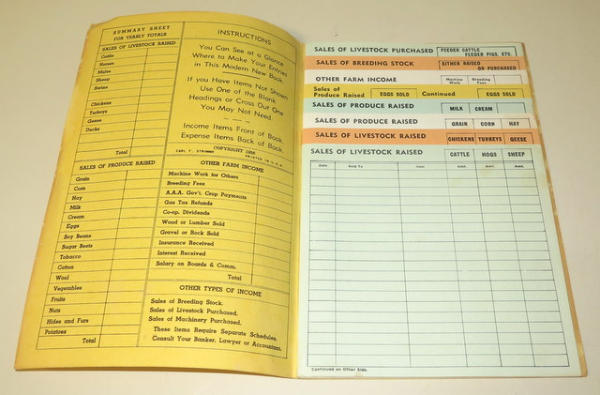 SUMMARY SHEET
FOR YEARLY TOTALS
SALES OF LIVESTOCK RAISED
Cattle
Horses
Mules
Sheep
Swine
Chickens
Turkeys
Geese
Ducks
Total
SALES OF PRODUCE RAISED
Grain
Corn
Hay
Milk
Cream
Eggs
Soy Beans
Sugar Beets
Tobacco
Cotton
Wool
Vegetables
Fruits
Nuts
Hides and Furs
Potatoes
Total
INSTRUCTIONS
You Can See at a Glance
Where to Make Your Entries
in This Modern New Book.
If you Have Items Not Shown
Use One of the Blank
Headings or Cross Out One
You May Not Need.
Income Items Front of Book.
Expense Items Back of Book.
COPYRIGHT
PRINTED IN U.S.A.
OTHER FARM INCOME
Machine Work for Others
Breeding Fees
A.A.A. Gov't. Crop Payments
Gas Tax Refunds
Co-op. Dividends
Wood or Lumber Sold
Gravel or Rock Sold
Insurance Received
Interest Received
Salary on Boards & Comm.
Total
OTHER TYPES OF INCOME
Sales of Breeding Stock.
Sales of Livestock Purchased.
Sales of Machinery Purchased.
These Items Require Separate Schedules.
Consult Your Banker, Lawyer or Accountant.
SALES OF LIVESTOCK PURCHASED FEEDER CATTLE
FEEDER PIGS, ETC.
SALES OF BREEDING STOCK EITHER RAISED
OR PURCHASED
OTHER FARM INCOME Machine Work Breeding Fees
Sales of Produce Raised EGGS SOLD Continued EGGS SOLD
SALES OF PRODUCE RAISED MILK CREAM
SALES OF PRODUCE RAISED GRAIN CORN HAY
SALES OF LIVESTOCK RAISED CHICKENS TURKEYS GEESE
SALES OF LIVESTOCK RAISED CATTLE HOGS SHEEP
Date Sold To Amt. Amt. Amt.
Continued on Other Side.